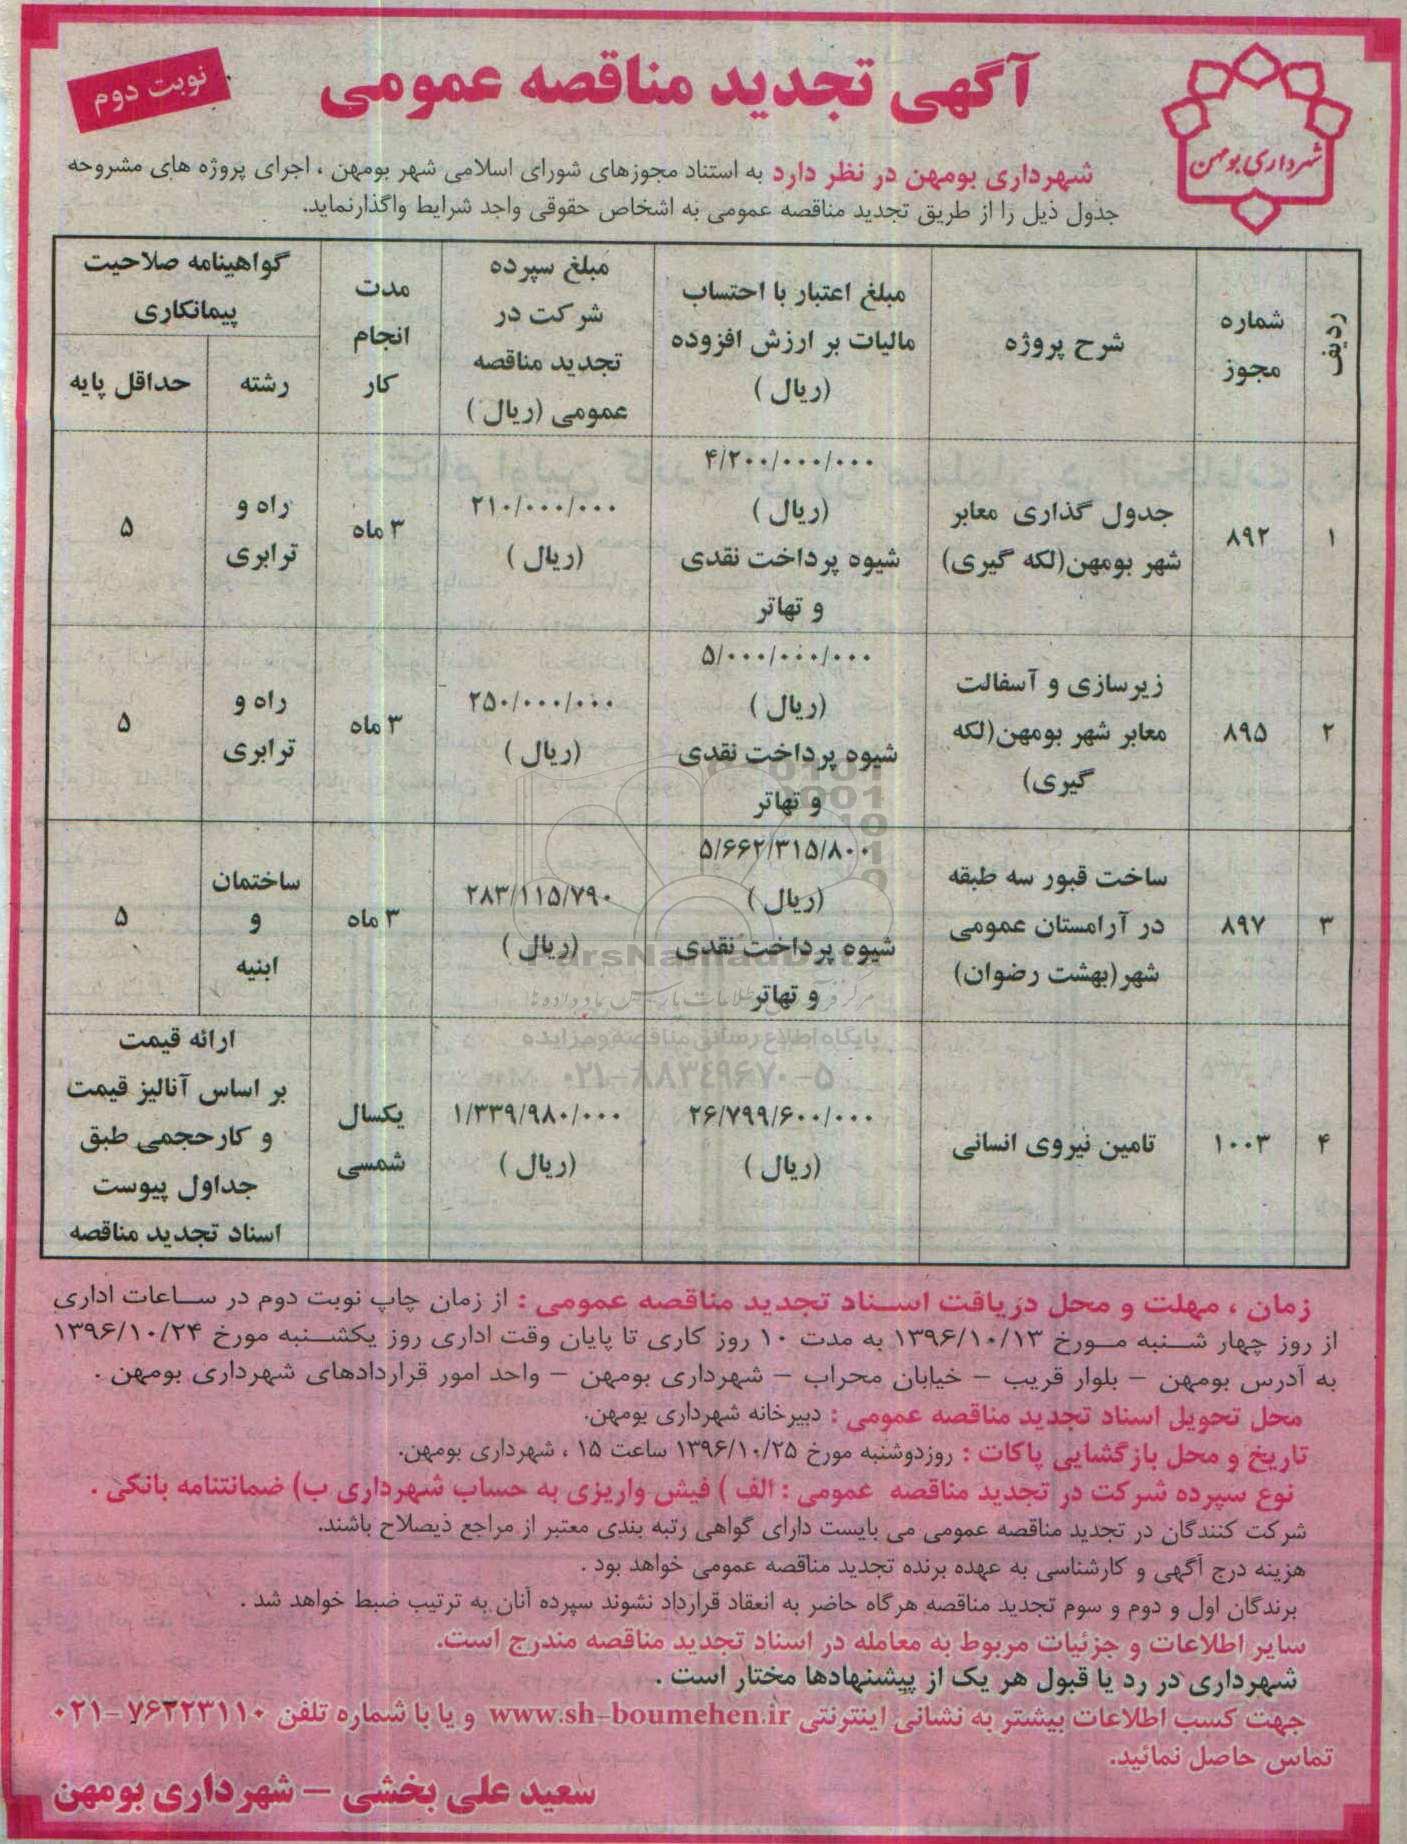 آگهی تجدید مناقصه عمومی
نوبت دوم
شهرداری بومهن
شهرداری بومهن در نظر دارد به استناد مجوزهای شورای اسلامی شهر بومهن ، اجرای پروژه های مشروحه
جدول ذیل را از طریق تجدید مناقصه عمومی به اشخاص حقوقی واجد شرایط واگذارنماید.
ردیف
شماره
مجوز
شرح پروژه
مبلغ اعتبار با احتساب
مالیات بر ارزش افزوده
(ریال )
مبلغ سپرده
شرکت در
تجدید مناقصه
عمومی (ریال )
مدت
انجام
کار
گواهینامه صلاحیت
پیمانکاری
رشته
حداقل پایه
۱
۸۹۲
جدول گذاری معابر
شهر بومهن(لکه گیری)
۴/۲۰۰/۰۰۰/۰۰۰
(ریال )
شیوه پرداخت نقدی
و تهاتر
۲۱۰/۰۰۰/۰۰۰
(ریال )
۳ ماه
راه و
ترابری
۵
۲
۸۹۵
زیرسازی و آسفالت
معابر شهر بومهن(لکه
گیری)
۵/۰۰۰/۰۰۰/۰۰۰
(ریال )
شیوه پرداخت نقدی
و تهاتر
۲۵۰/۰۰۰/۰۰۰
(ریال )
۳ ماه
راه و
ترابری
۵
۳
۸۹۷
ساخت قبور سه طبقه
در آرامستان عمومی
شهر(بهشت رضوان)
۵/۶۶۲/۳۱۵/۸۰۰
(ریال )
شیوه پرداخت نقدی
و تهاتر
۲۸۳/۱۱۵/۷۹۰
(ریال )
۳ ماه
ساختمان
و
ابنیه
۵
۴
۱۰۰۳
تامین نیروی انسانی
۲۶/۷۹۹/۶۰۰/۰۰۰
(ریال )
۱/۳۳۹/۹۸۰/۰۰۰
(ریال )
یکسال
شمسی
ارائه قیمت
بر اساس آنالیز قیمت
و کارحجمی طبق
جداول پیوست
اسناد تجدید مناقصه
ParsNamadData
پایگاه اطلاع رسانی مناقصه و مزایده
۰۲۱-۸۸۳۴۹۶۷۰-۵
زمان ، مهلت و محل دریافت اسناد تجدید مناقصه عمومی : از زمان چاپ نوبت دوم در ساعات اداری
از روز چهار شنبه مورخ ۱۳۹۶/۱۰/۱۳ به مدت ۱۰ روز کاری تا پایان وقت اداری روز یکشنبه مورخ ۱۳۹۶/۱۰/۲۴
به آدرس بومهن – بلوار قریب – خیابان محراب – شهرداری بومهن – واحد امور قراردادهای شهرداری بومهن .
محل تحویل اسناد تجدید مناقصه عمومی : دبیرخانه شهرداری بومهن.
تاریخ و محل بازگشایی پاکات : روزدوشنبه مورخ ۱۳۹۶/۱۰/۲۵ ساعت ۱۵ ، شهرداری بومهن.
نوع سپرده شرکت در تجدید مناقصه عمومی : الف ) فیش واریزی به حساب شهرداری ب) ضمانتنامه بانکی .
شرکت کنندگان در تجدید مناقصه عمومی می بایست دارای گواهی رتبه بندی معتبر از مراجع ذیصلاح باشند.
هزینه درج آگهی و کارشناسی به عهده برنده تجدید مناقصه عمومی خواهد بود .
برندگان اول و دوم و سوم تجدید مناقصه هرگاه حاضر به انعقاد قرارداد نشوند سپرده آنان به ترتیب ضبط خواهد شد .
سایر اطلاعات و جزئیات مربوط به معامله در اسناد تجدید مناقصه مندرج است.
شهرداری در رد یا قبول هر یک از پیشنهادها مختار است .
جهت کسب اطلاعات بیشتر به نشانی اینترنتی www.sh-boumehen.ir و یا با شماره تلفن ۷۶۲۲۳۱۱۰-۰۲۱
تماس حاصل نمائید.
سعید علی بخشی – شهرداری بومهن